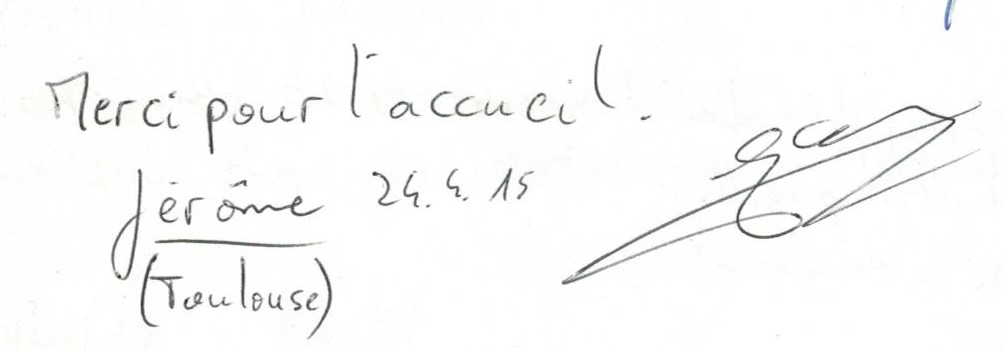 Merci pour l'accueil.
Jérôme 24.4.15
(Toulouse)